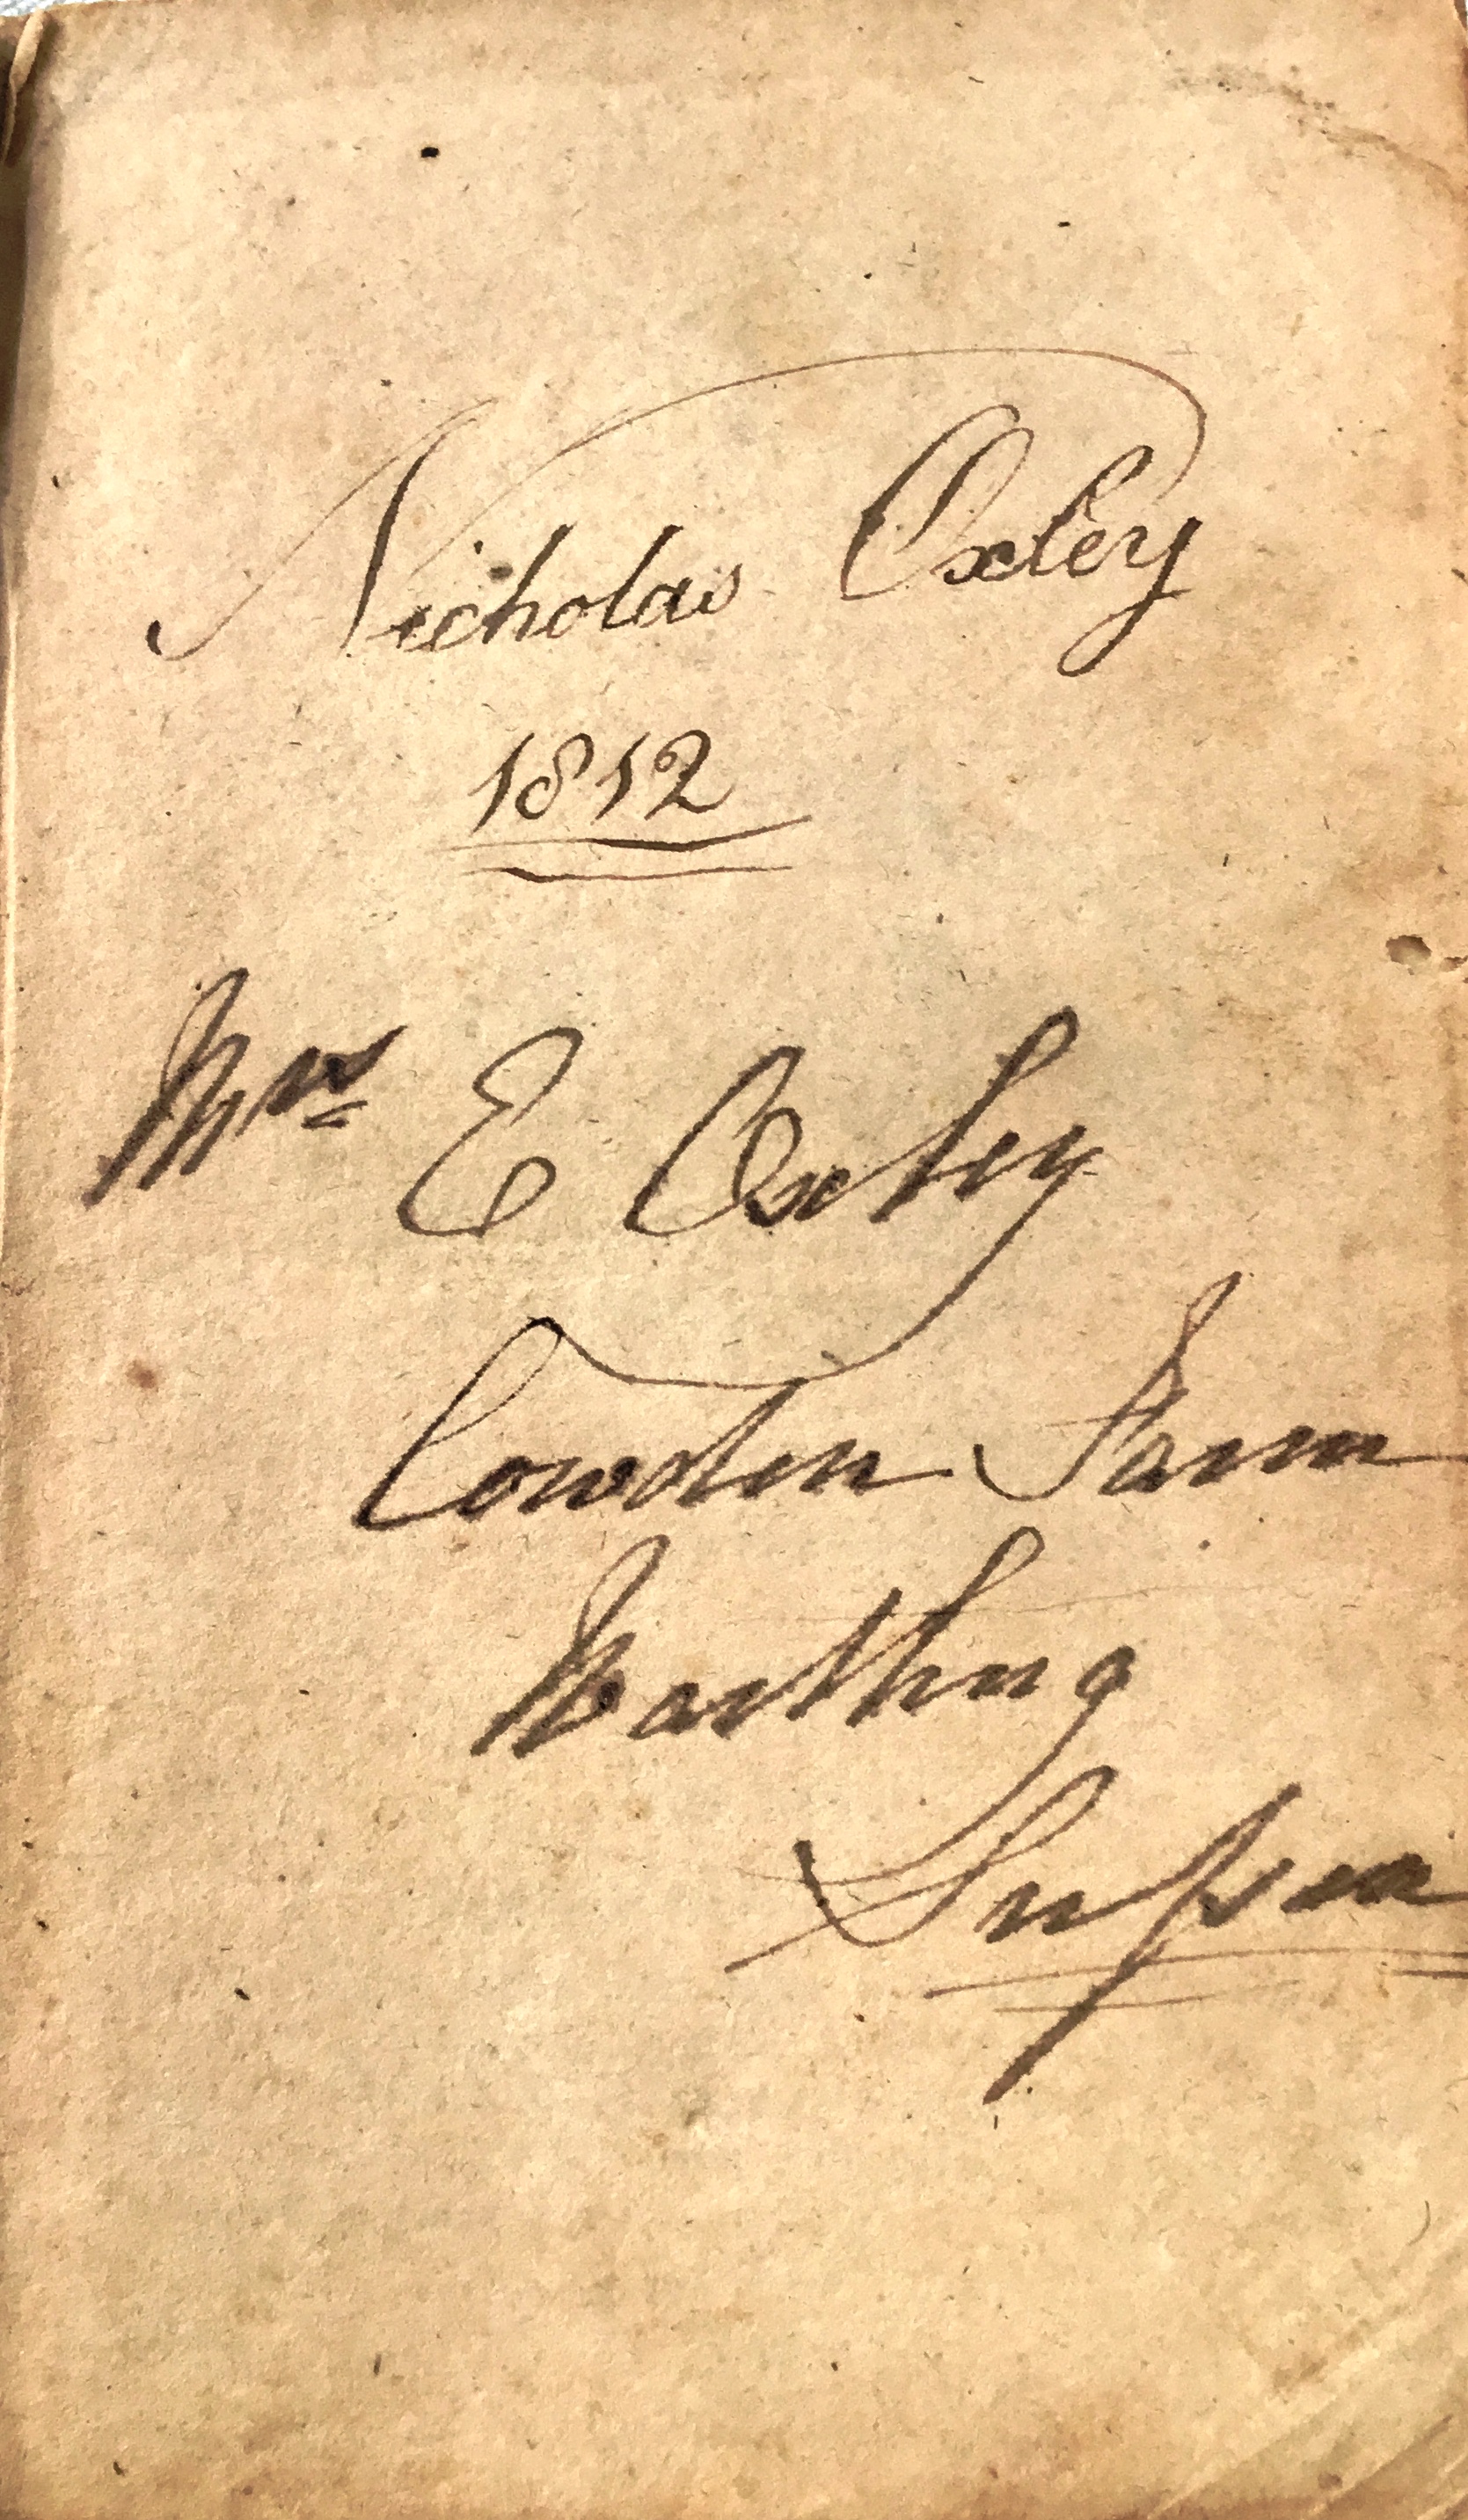 Nicholas Oxley
1812
Mrs E Oxley
Cowden Farm
Wartling
Suſsex